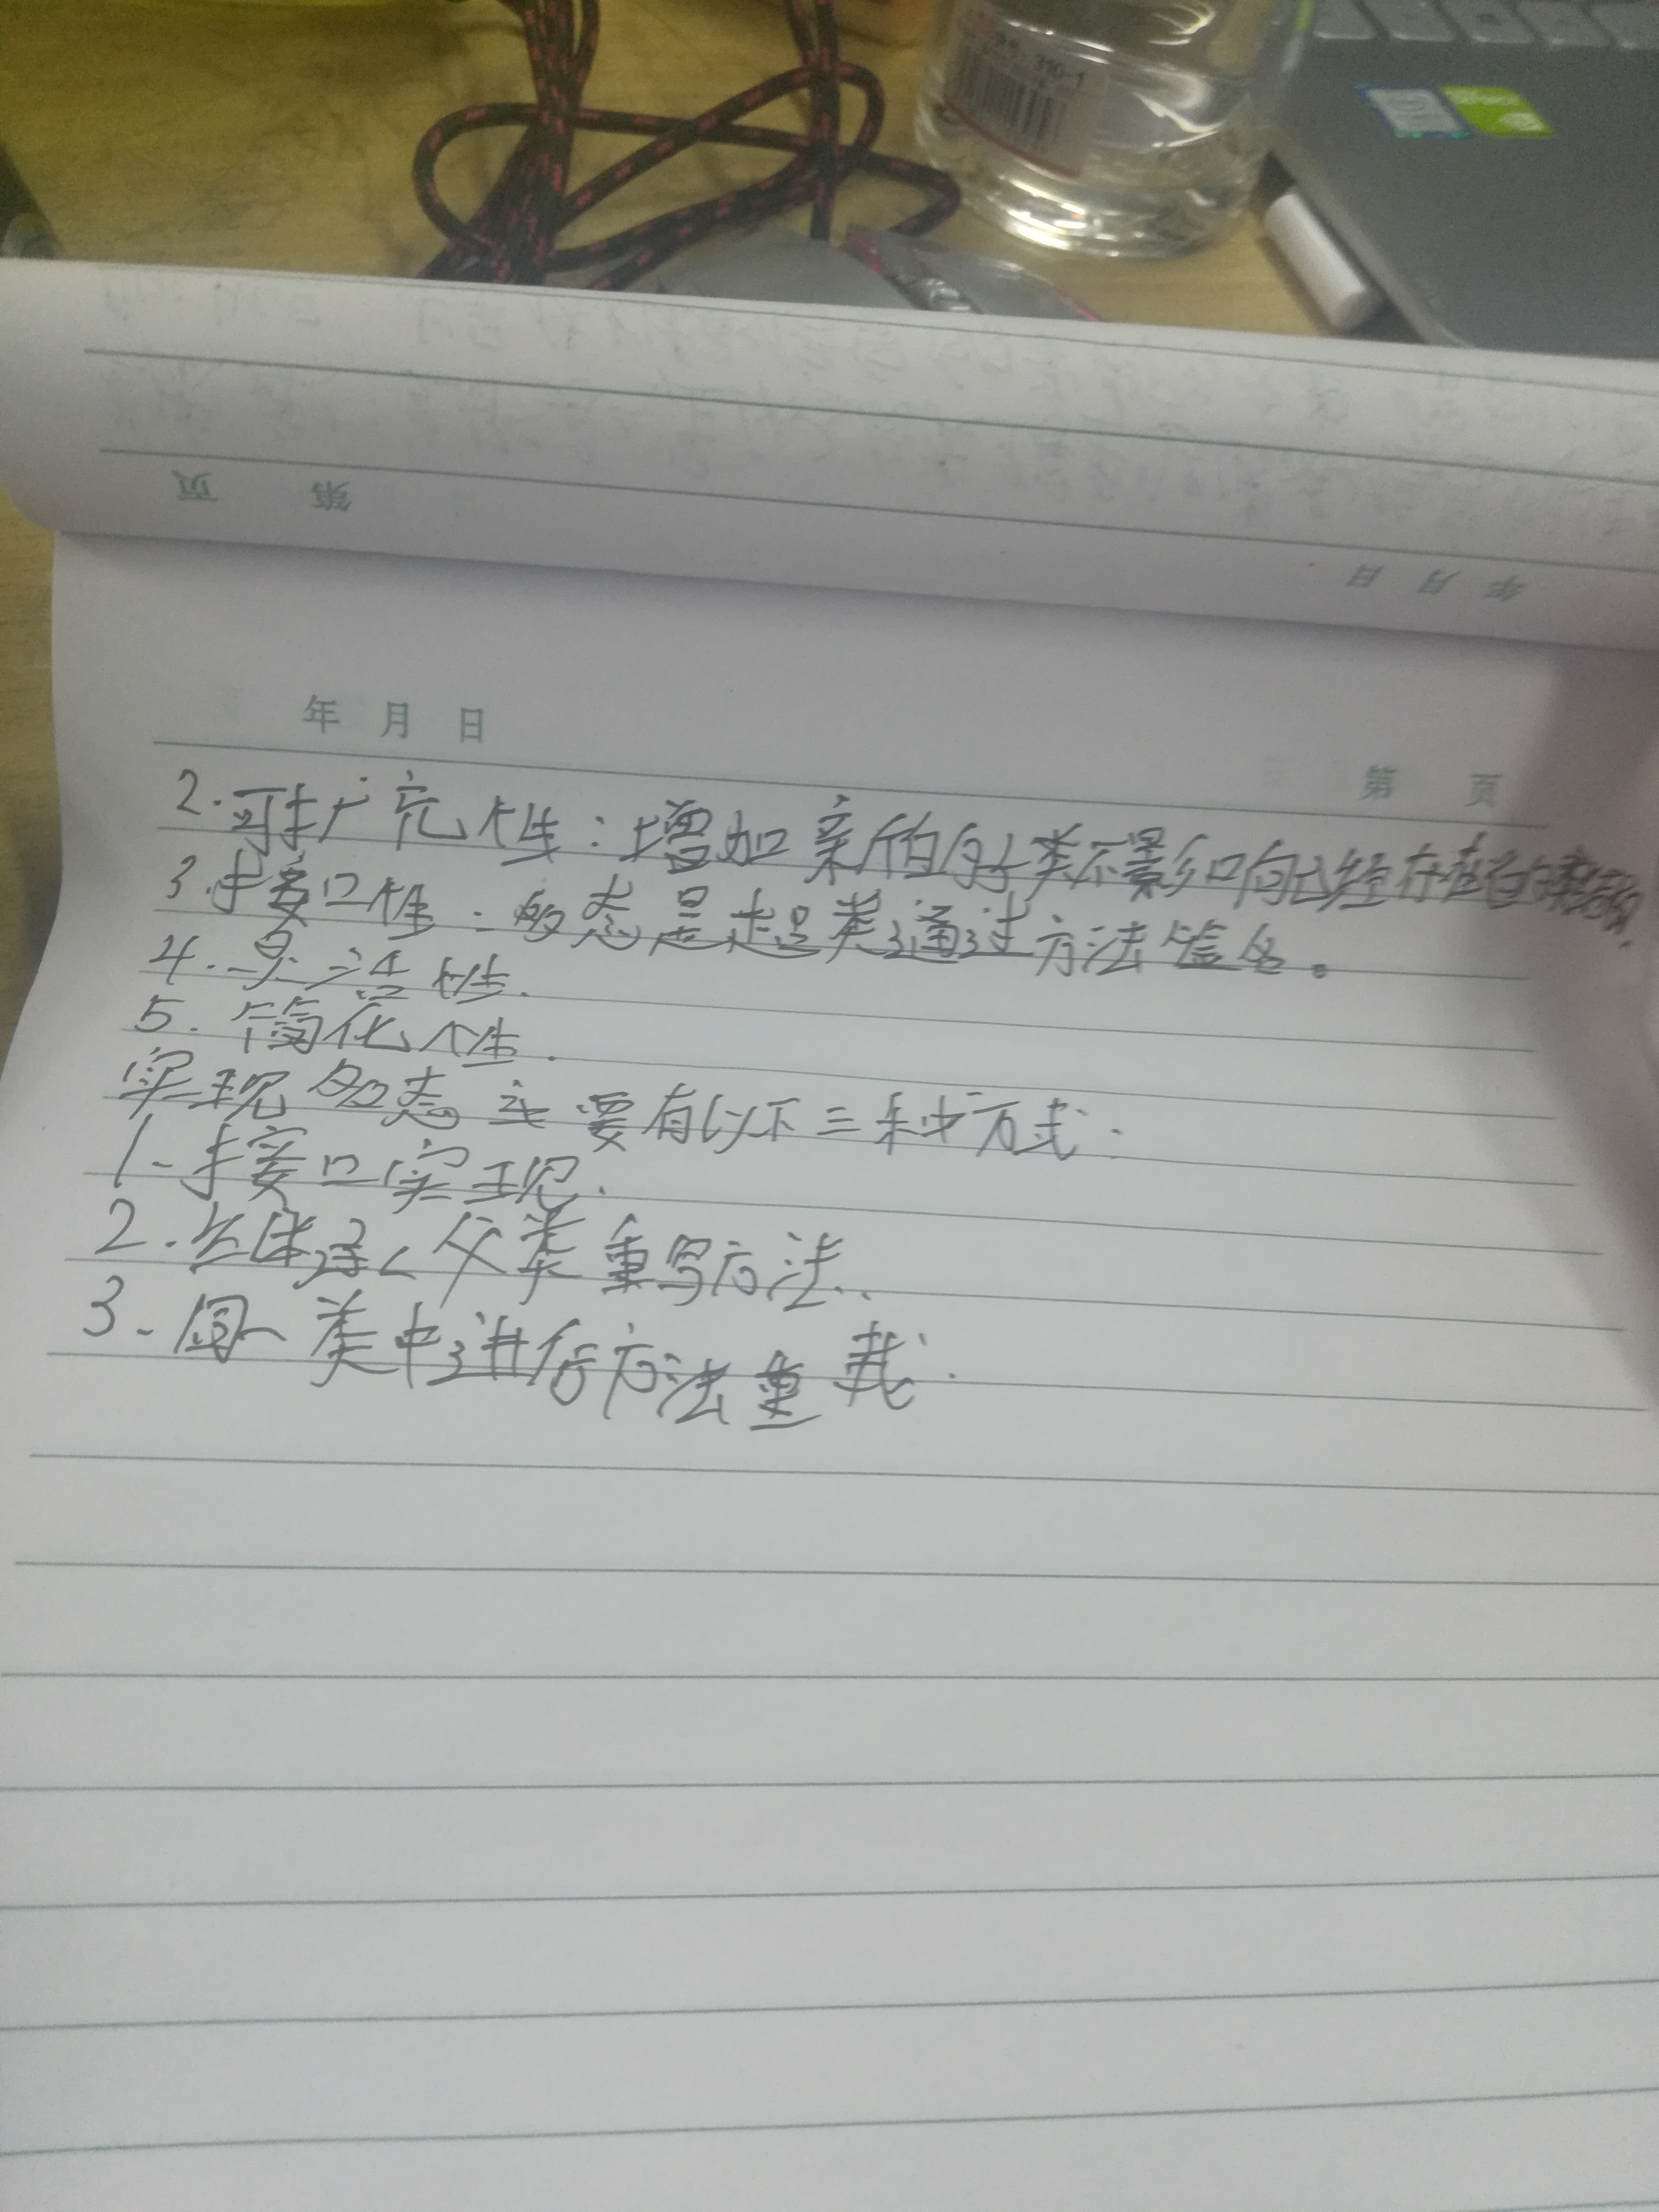 310-1
第 页
年 月 日
年 月 日
第 页
2.可扩充性:增加新的子类不影响已经存在的
3.接口性:多态是超类通过方法签名。
4.灵活性.
5.简化性.
实现多态主要有以下三种方式.
1.接口实现.
2.父类重写方法.
3.同一类中进行方法重载.